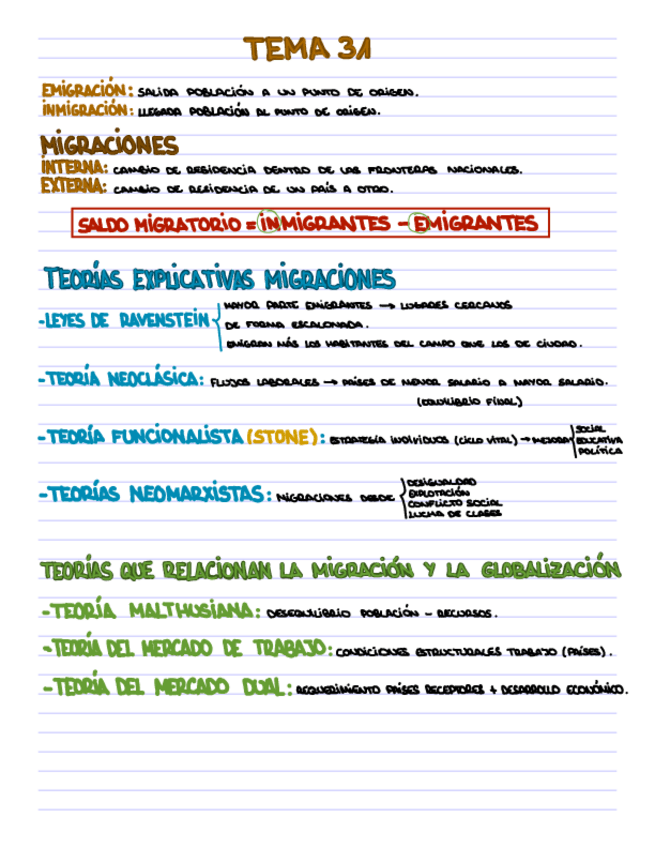 TEMA 3.1
EMIGRACIÓN: SALIDA POBLACIÓN A UN PUNTO DE ORIGEN.
INMIGRACIÓN: LLEGADA POBLACIÓN AL PUNTO DE ORIGEN.
MIGRACIONES
INTERNA: CAMBIO DE RESIDENCIA DENTRO DE LAS FRONTERAS NACIONALES.
EXTERNA: CAMBIO DE RESIDENCIA DE UN PAÍS A OTRO.
SALDO MIGRATORIO = INMIGRANTES - EMIGRANTES
TEORÍAS EXPLICATIVAS MIGRACIONES
-LEYES DE RAVENSTEIN
MAYOR PARTE EMIGRANTES → LUGARES CERCANOS
DE FORMA ESCALONADA.
EMIGRAN MÁS LOS HABITANTES DEL CAMPO QUE LOS DE CIUDAD.
-TEORÍA NEOCLÁSICA: FLUJOS LABORALES → PAÍSES DE MENOR SALARIO A MAYOR SALARIO.
(EQUILIBRIO FINAL)
-TEORÍA FUNCIONALISTA (STONE): ESTRATEGIA INDIVIDUOS (CICLO VITAL) → MEJORA
SOCIAL
EDUCATIVA
POLÍTICA
-TEORÍAS NEOMARXISTAS: MIGRACIONES DESDE
DESIGUALDAD
EXPLOTACIÓN
CONFLICTO SOCIAL
LUCHA DE CLASES
TEORÍAS QUE RELACIONAN LA MIGRACIÓN Y LA GLOBALIZACIÓN
-TEORÍA MALTHUSIANA: DESEQUILIBRIO POBLACIÓN - RECURSOS.
-TEORÍA DEL MERCADO DE TRABAJO: CONDICIONES ESTRUCTURALES TRABAJO (PAÍSES).
-TEORÍA DEL MERCADO DUAL: REQUERIMIENTO PAÍSES RECEPTORES + DESARROLLO ECONÓMICO.